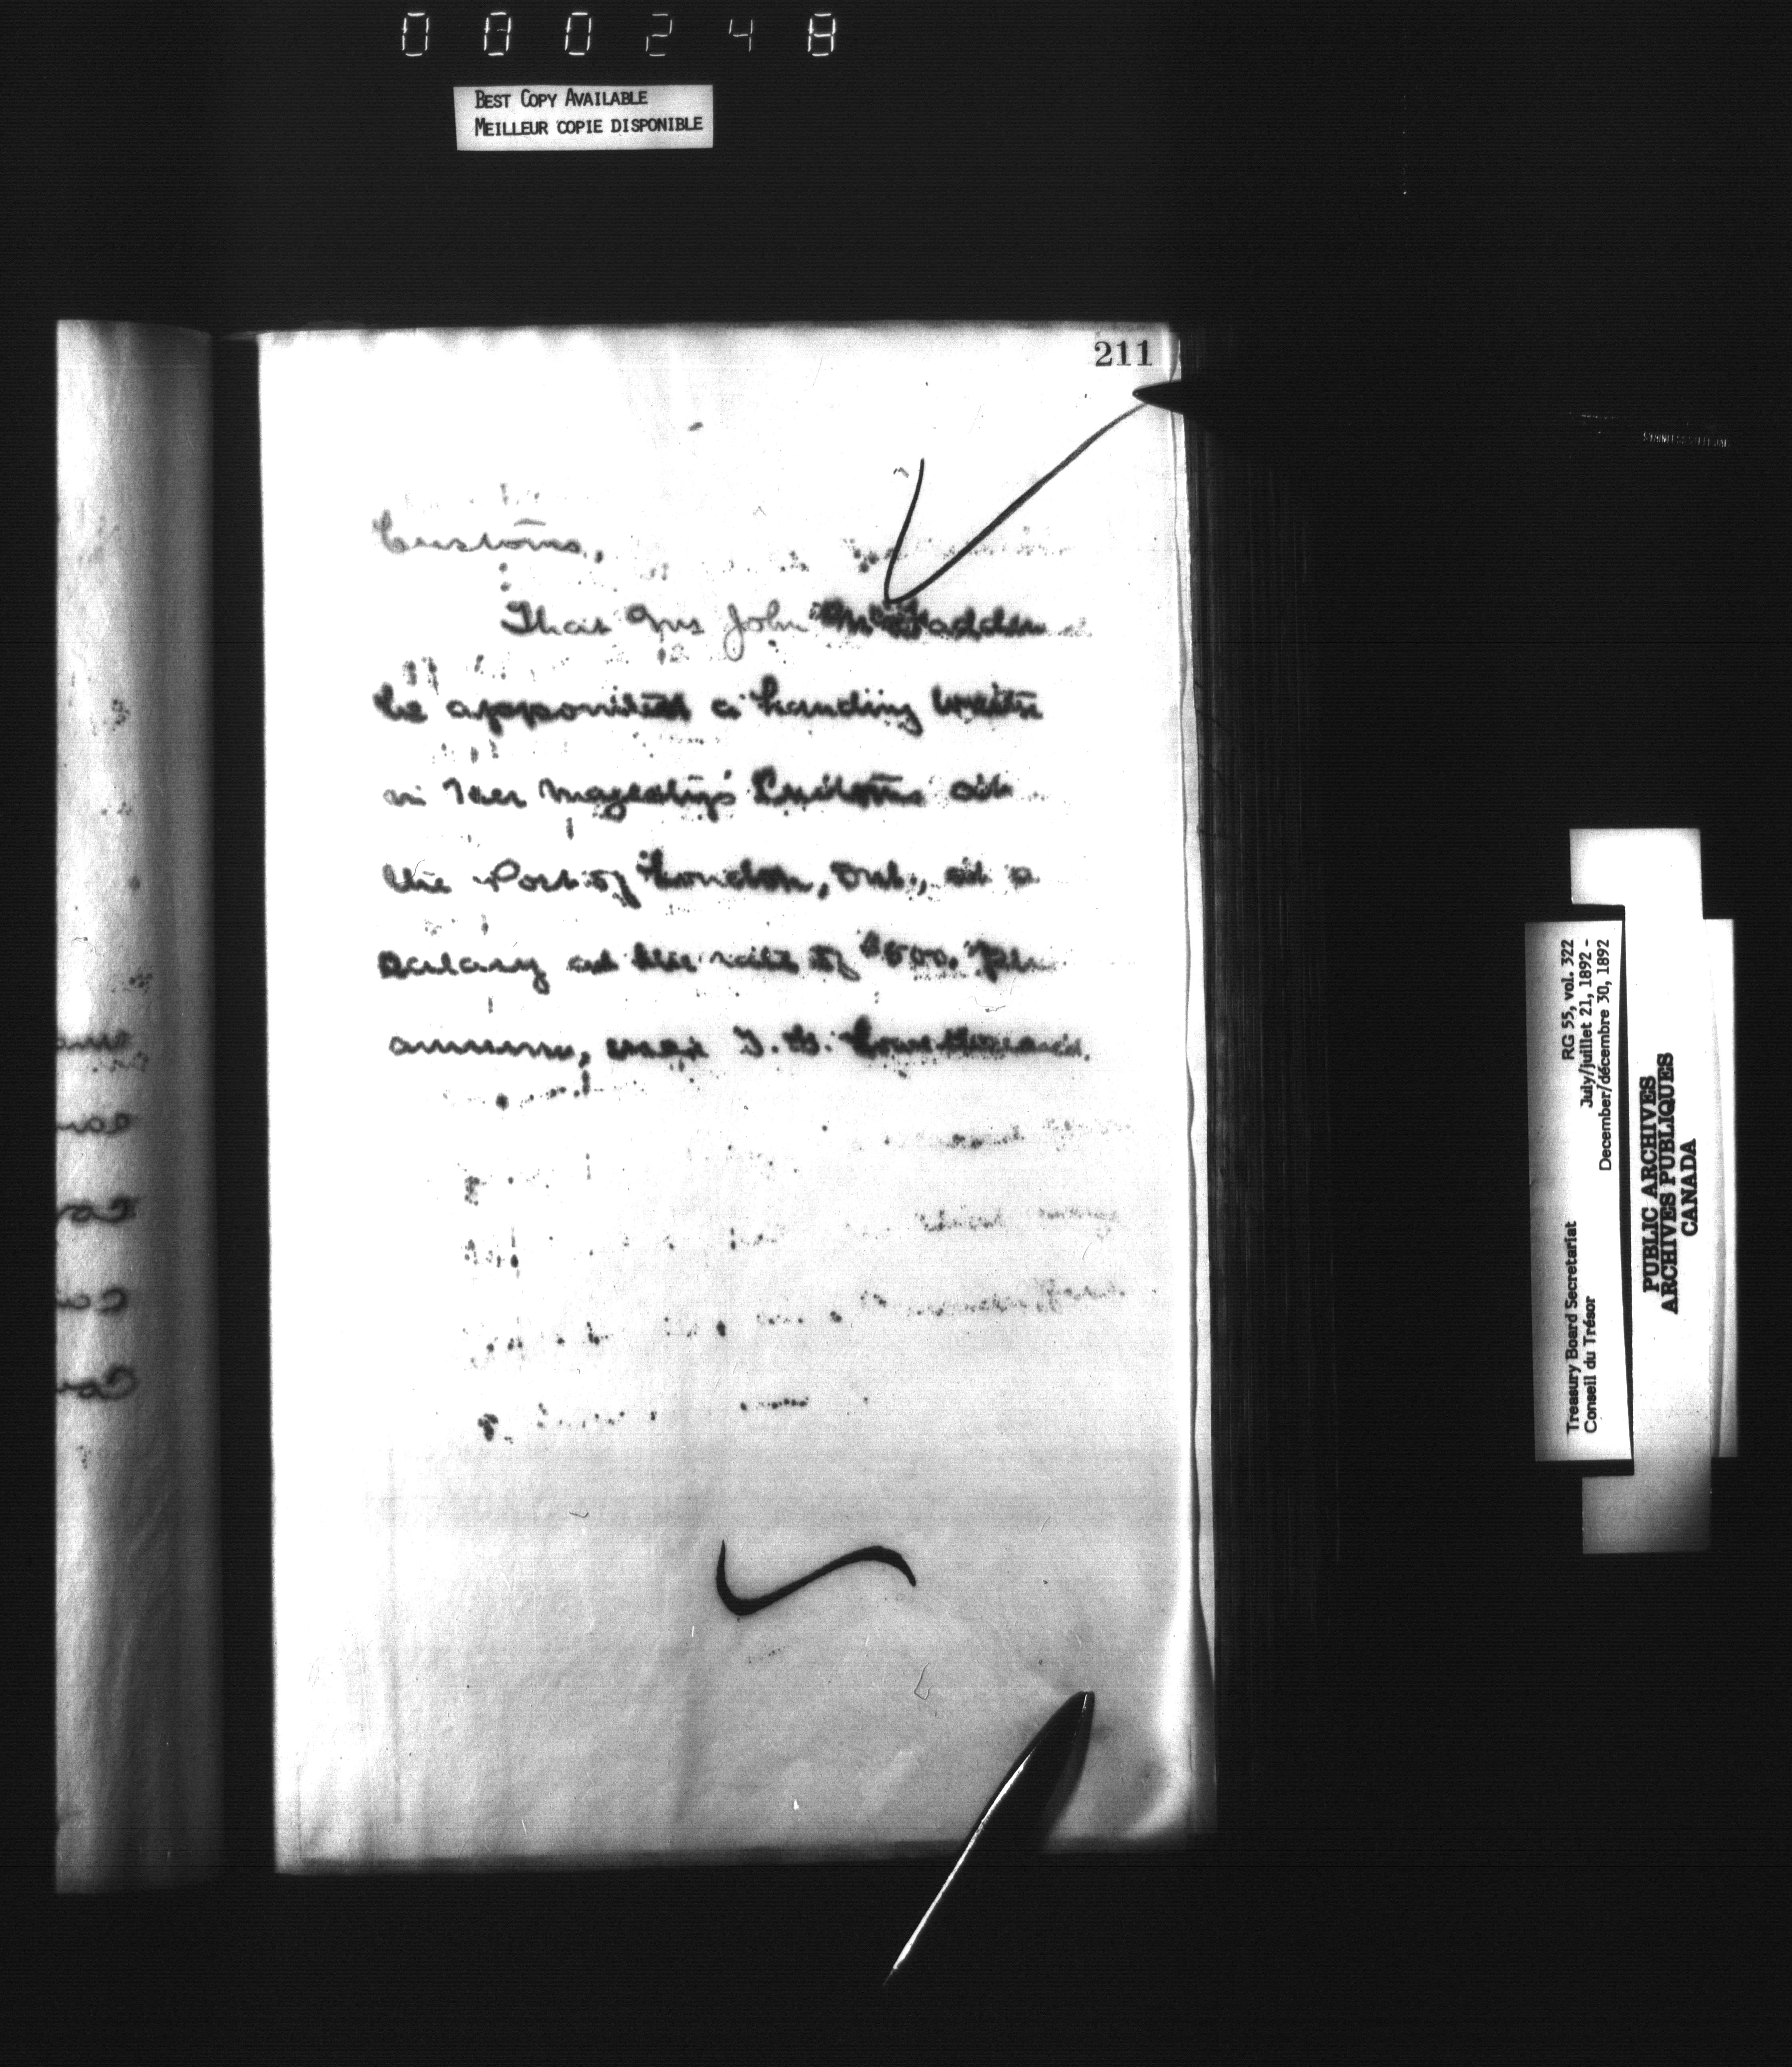 000248
BEST COPY AVAILABLE
MEILLEUR COPIE DISPONIBLE
211
Customs,
That Mr John McFadden
be appointed a Landing Waiter
in Her Majesty's Customs at
the Port of London, Ont., at a
salary at the rate of $500. per
annum, vice J.
Treasury Board Secretariat RG 55, vol. 322
Conseil du Trésor July/juillet 21, 1892 -
December/décembre 30, 1892
PUBLIC ARCHIVES
ARCHIVES PUBLIQUES
CANADA